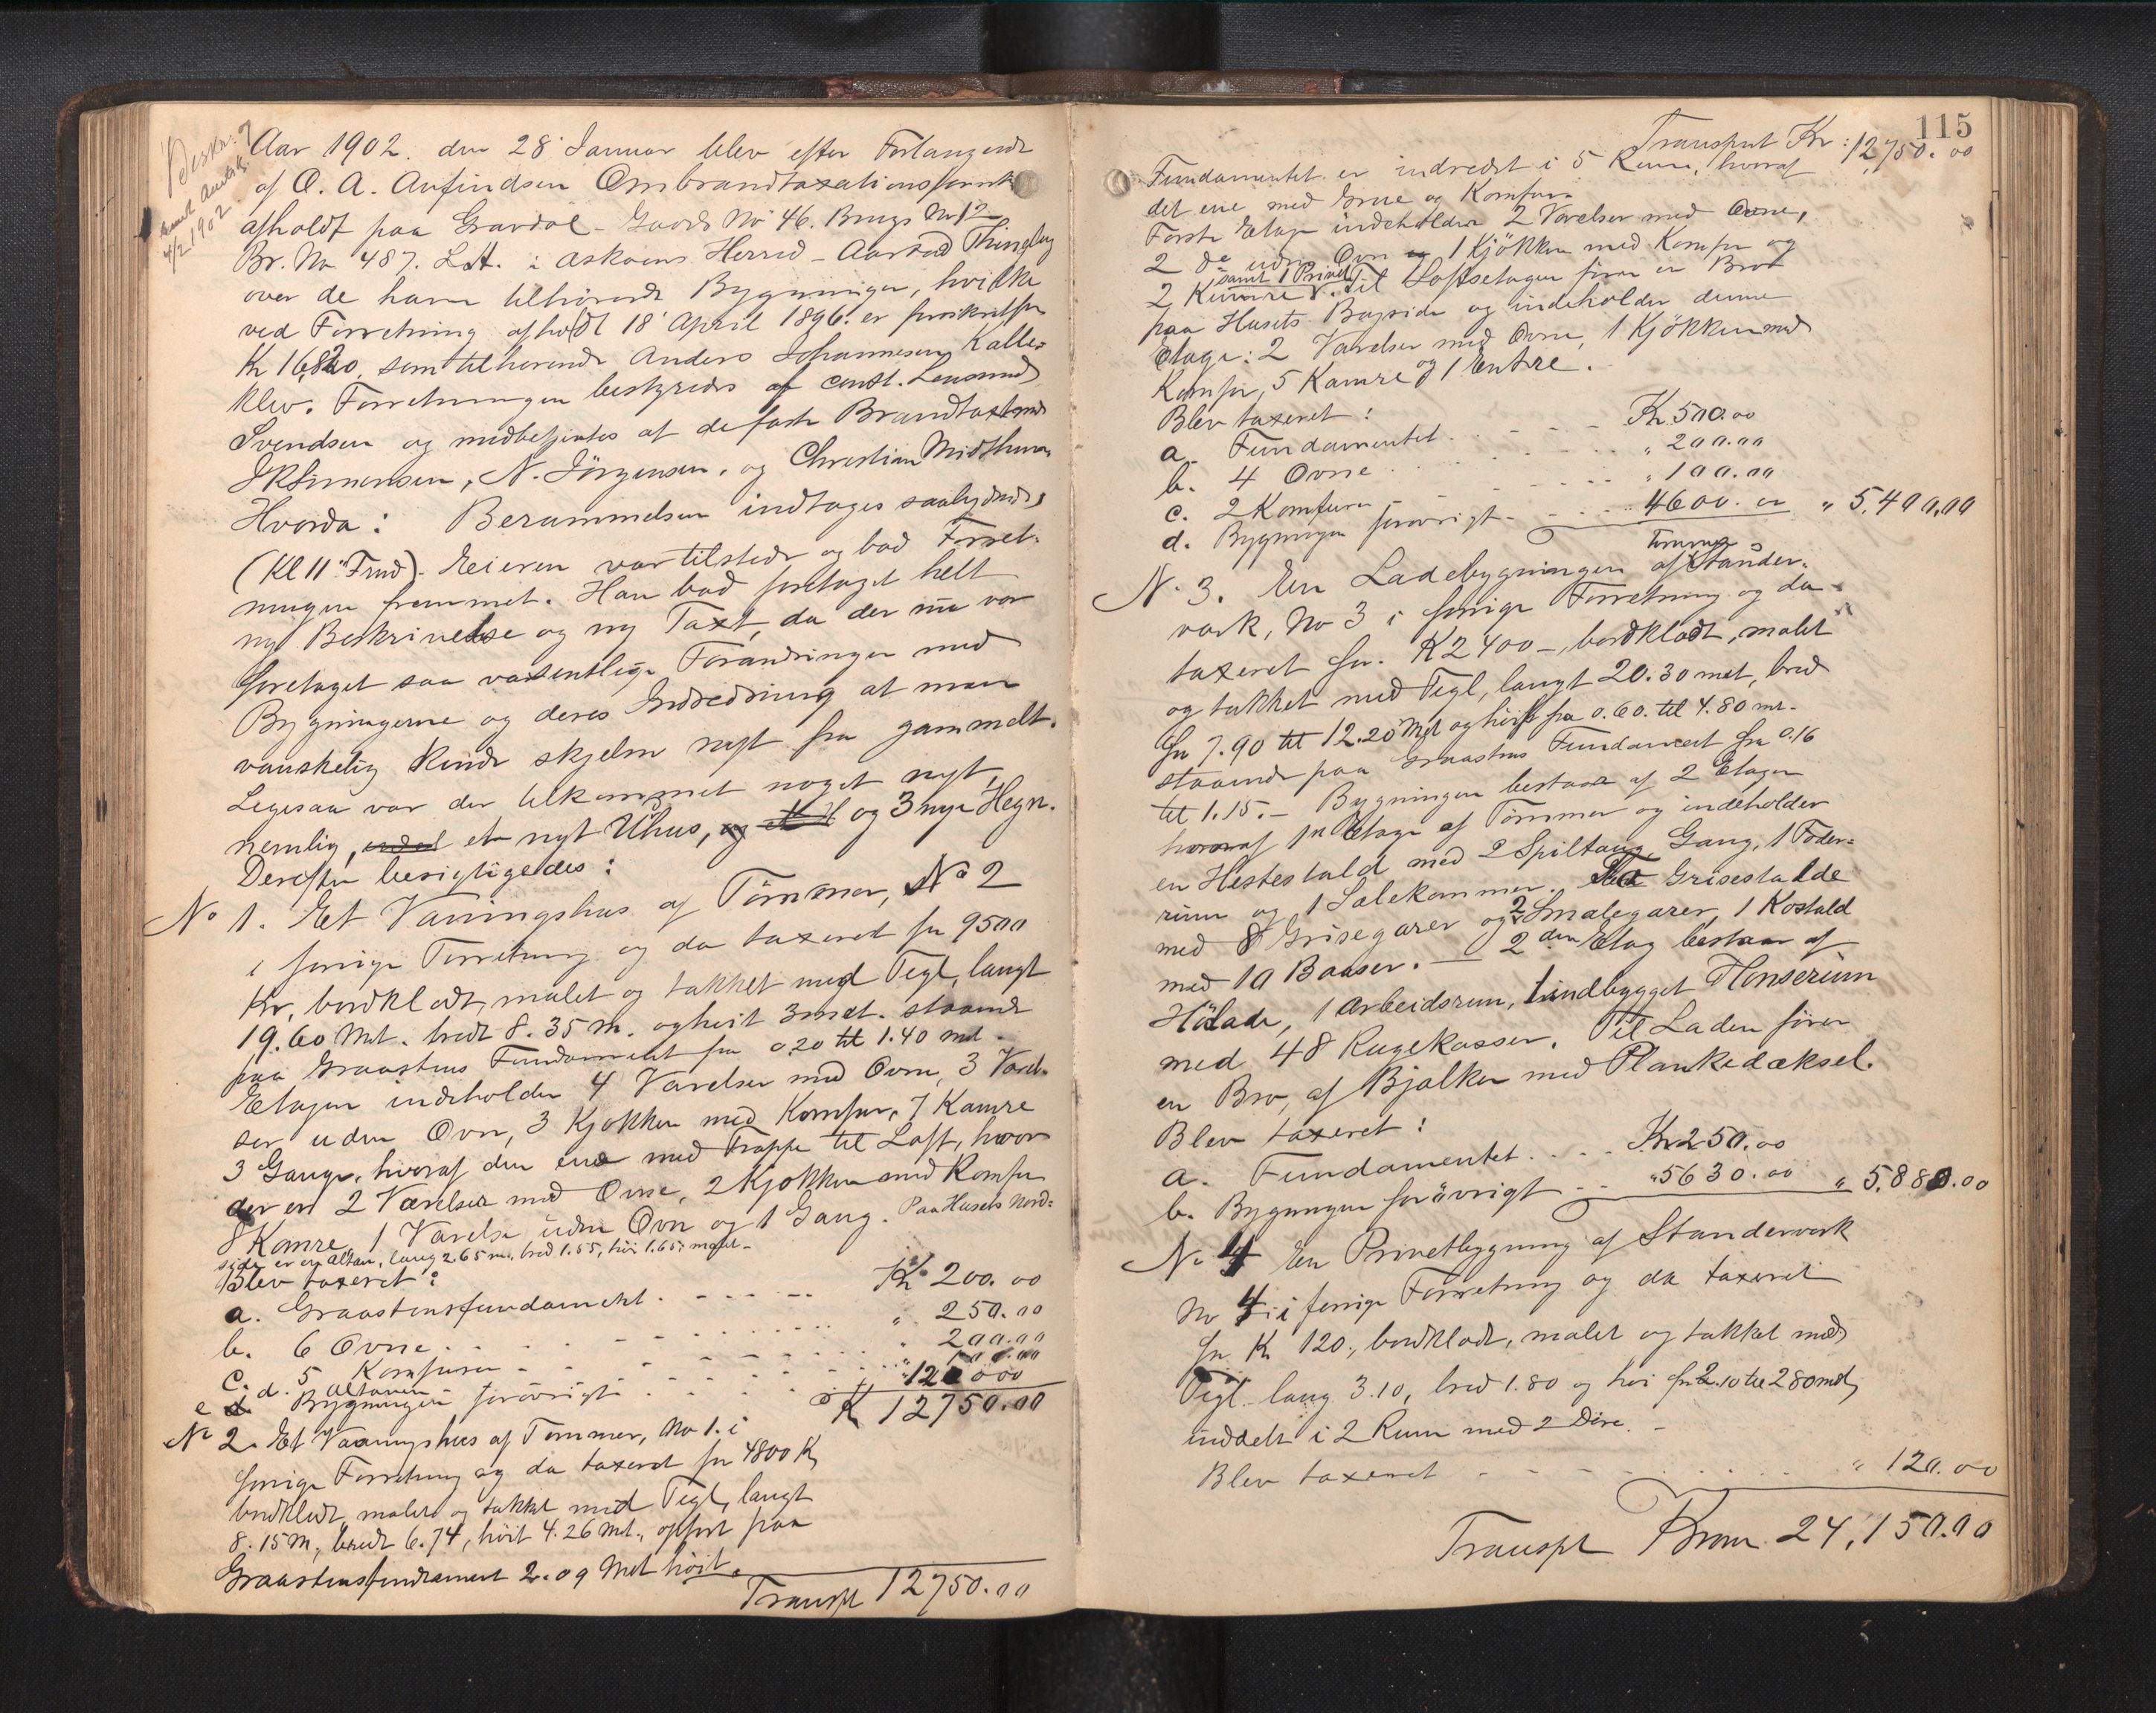 Aar 1902. den 28' Januar blev efter Forlangende
af O. A. Anfindsen Ombrandtaxationsforretn
afholdt paa Gravdal - Gaards No 46. Brugs No 12
Br. No 487. L.A. i Askøens Herred - Aarstad Thinglag
over de ham tilhørende Bygninger, hvilke
ved Forretning afholdt 18' April 1896. er forsikret for
Kr 16,820, som tilhørende Anders Johannesen Kalle-
klev. Forretningen bestyredes af const. Lensmand
Svendsen og medbetjentes af de faste Brandtaxtmænd
N. Jørgensen, og Christian Midthun
Hvorda: Berammelsen indtages saalydende,
(Kl 11 Fmd). Eieren var tilstede og bad Forret-
ningen fremmet. Han bad foretaget helt
ny Beskrivelse og ny Taxt, da der nu var
foretaget saa væsentlige Forandringer med
Bygningerne og deres Indredning at man
vanskelig kunde skjelne nyt fra gammelt.
Ligesaa var der tilkommet noget nyt
nemlig, et nyt Uhus, og 3 nye Hegn.
Derefter besigtigedes:
No 1. Et Vaaningshus af Tømmer, No 2
i forrige Forretning og da taxeret for 9500
Kr, bordklædt, malet og tækket med Tegl, langt
19.60 Met. bredt 8.35 m. og høit 3 met. staaende
paa Graastens Fundament fra 0.20 til 1.40 met.
Etagen indeholder 4 Værelser med Ovn, 3 Værel-
ser uden Ovn, 3 Kjøkken med Komfur, 7 Kamre
3 Gange, hvoraf den ene med Trappe til Loft, hvor
der er 2 Værelser med Ovne, 2 Kjøkken med Komfur
8 Kamre, 1 Værelse uden Ovn og 1 Gang. Paa Husets Nord-
side er en Altan, lang 2.65 m., bred 1.55, høi 1.65, malet.
Blev taxeret:
a. Graastensfundament. - - - - Kr 200.00
b. 6 Ovne - - - - " 250.00
c. 5 Komfurer - - - - " 200.00
d. Altanen - - - - " 100.00
e. Bygningen forøvrigt - - - - " 12000
Kr 12750.00
No 2. Et Vaaningshus af Tømmer, No 1. i
forrige Forretning og da taxeret for 4800 Kr,
bordklædt, malet og tækket med Tegl, langt
8.15 M, bredt 6.74, høit 4.26 Met., opført paa
Graastensfundament 2.09 Met høit.
Transpt 12750.00
115
Transport Kr: 12,750.00
Fundamentet er indredet i 5 Rum, hvoraf
det ene med Grue og Komfur.
Første Etage indeholder 2 Værelser med Ovne,
2 de uden Ovn 1 Kjøkken med Komfur og
samt 1 Privet
2 Kamre. Til Loftsetagen fører en Bro
paa Husets Bagside og indeholder denne
Etage: 2 Værelser med Ovne, 1 Kjøkken med
Komfur, 5 Kamre og 1 Entre.
Blev taxeret:
a. Fundamentet. - - - - Kr. 500.00
b. 4 Ovne - - - - " 200.00
c. 2 Komfurer - - - - " 100.00
d. Bygningen forøvrigt - - - - 4600.00 " 5,400.00
Tømmer
No 3. En Ladebygningen af Stander-
værk, No 3 i forrige Forretning og da
taxeret for. K 2400 -, bordklædt, malet
og tækket med Tegl, langt 20.30 met, bred
fra 7.90 til 12.20 Met og høi fra 0.60. til 4.80 mt.
staaende paa Graastens Fundament fra 0.16
til 1.15. - Bygningen bestaar af 2 Etager
hvoraf 1ste Etage af Tømmer og indeholder
en Hestestald med 2 Spiltaug, Gang, 1 Foder-
rum og 1 Salekammer. Grisestalde
med 8 Grisegarer og 2 Smalegarer, 1 Kostald
med 10 Baaser. - 2den Etag bestaar af
Hølade, 1 Arbeidsrum, 1 indbygget Hønserum
med 48 Rugekasser. Til Laden fører
en Bro, af Bjælker med Plankedæksel.
Blev taxeret:
a. Fundamentet. - - - - Kr. 250.00
b. Bygningen forøvrigt - - - - " 5630.00 " 5,880.00
No 4 En Privetbygning af Standerværk
No 4 i forrige Forretning og da taxeret
for Kr 120, bordklædt, malet og tækket med
Tegl lang 3.10, bred 1.80 og høi fra 2.10 til 280 met,
inddelt i 2 Rum med 2 Døre. -
Blev taxeret - - - - " 120.00
Transpt Kroner 24,150.00